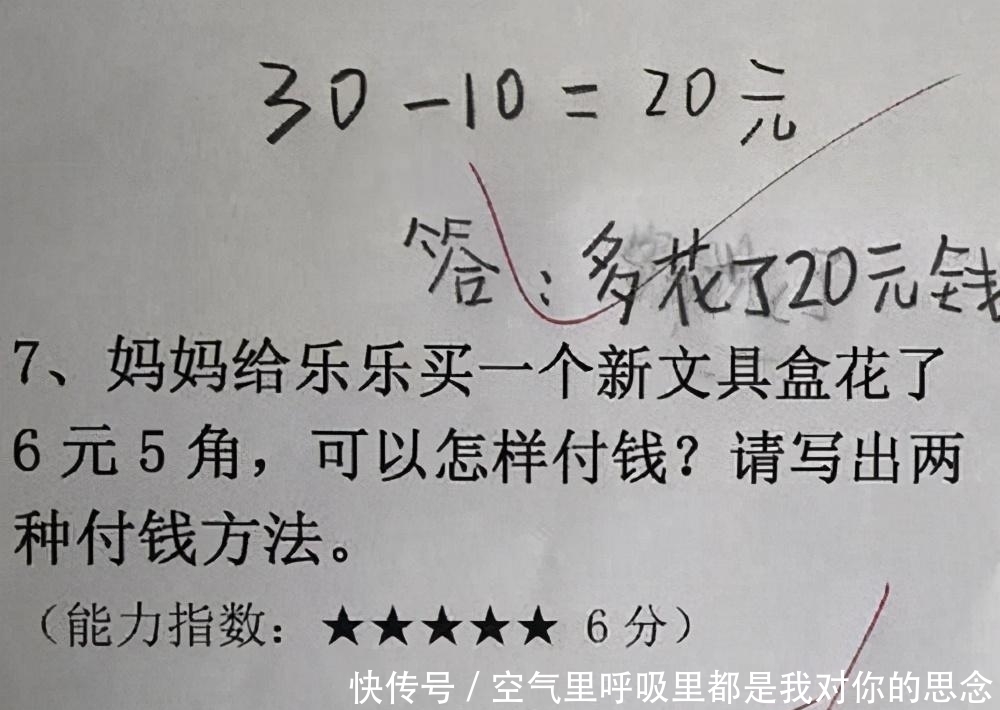 30-10=20元
答：多花了20元钱
7、妈妈给乐乐买一个新文具盒花了
6元5角，可以怎样付钱？请写出两
种付钱方法。
（能力指数：★★★★★ 6分）
快传号/空气里呼吸里都是我对你的思念